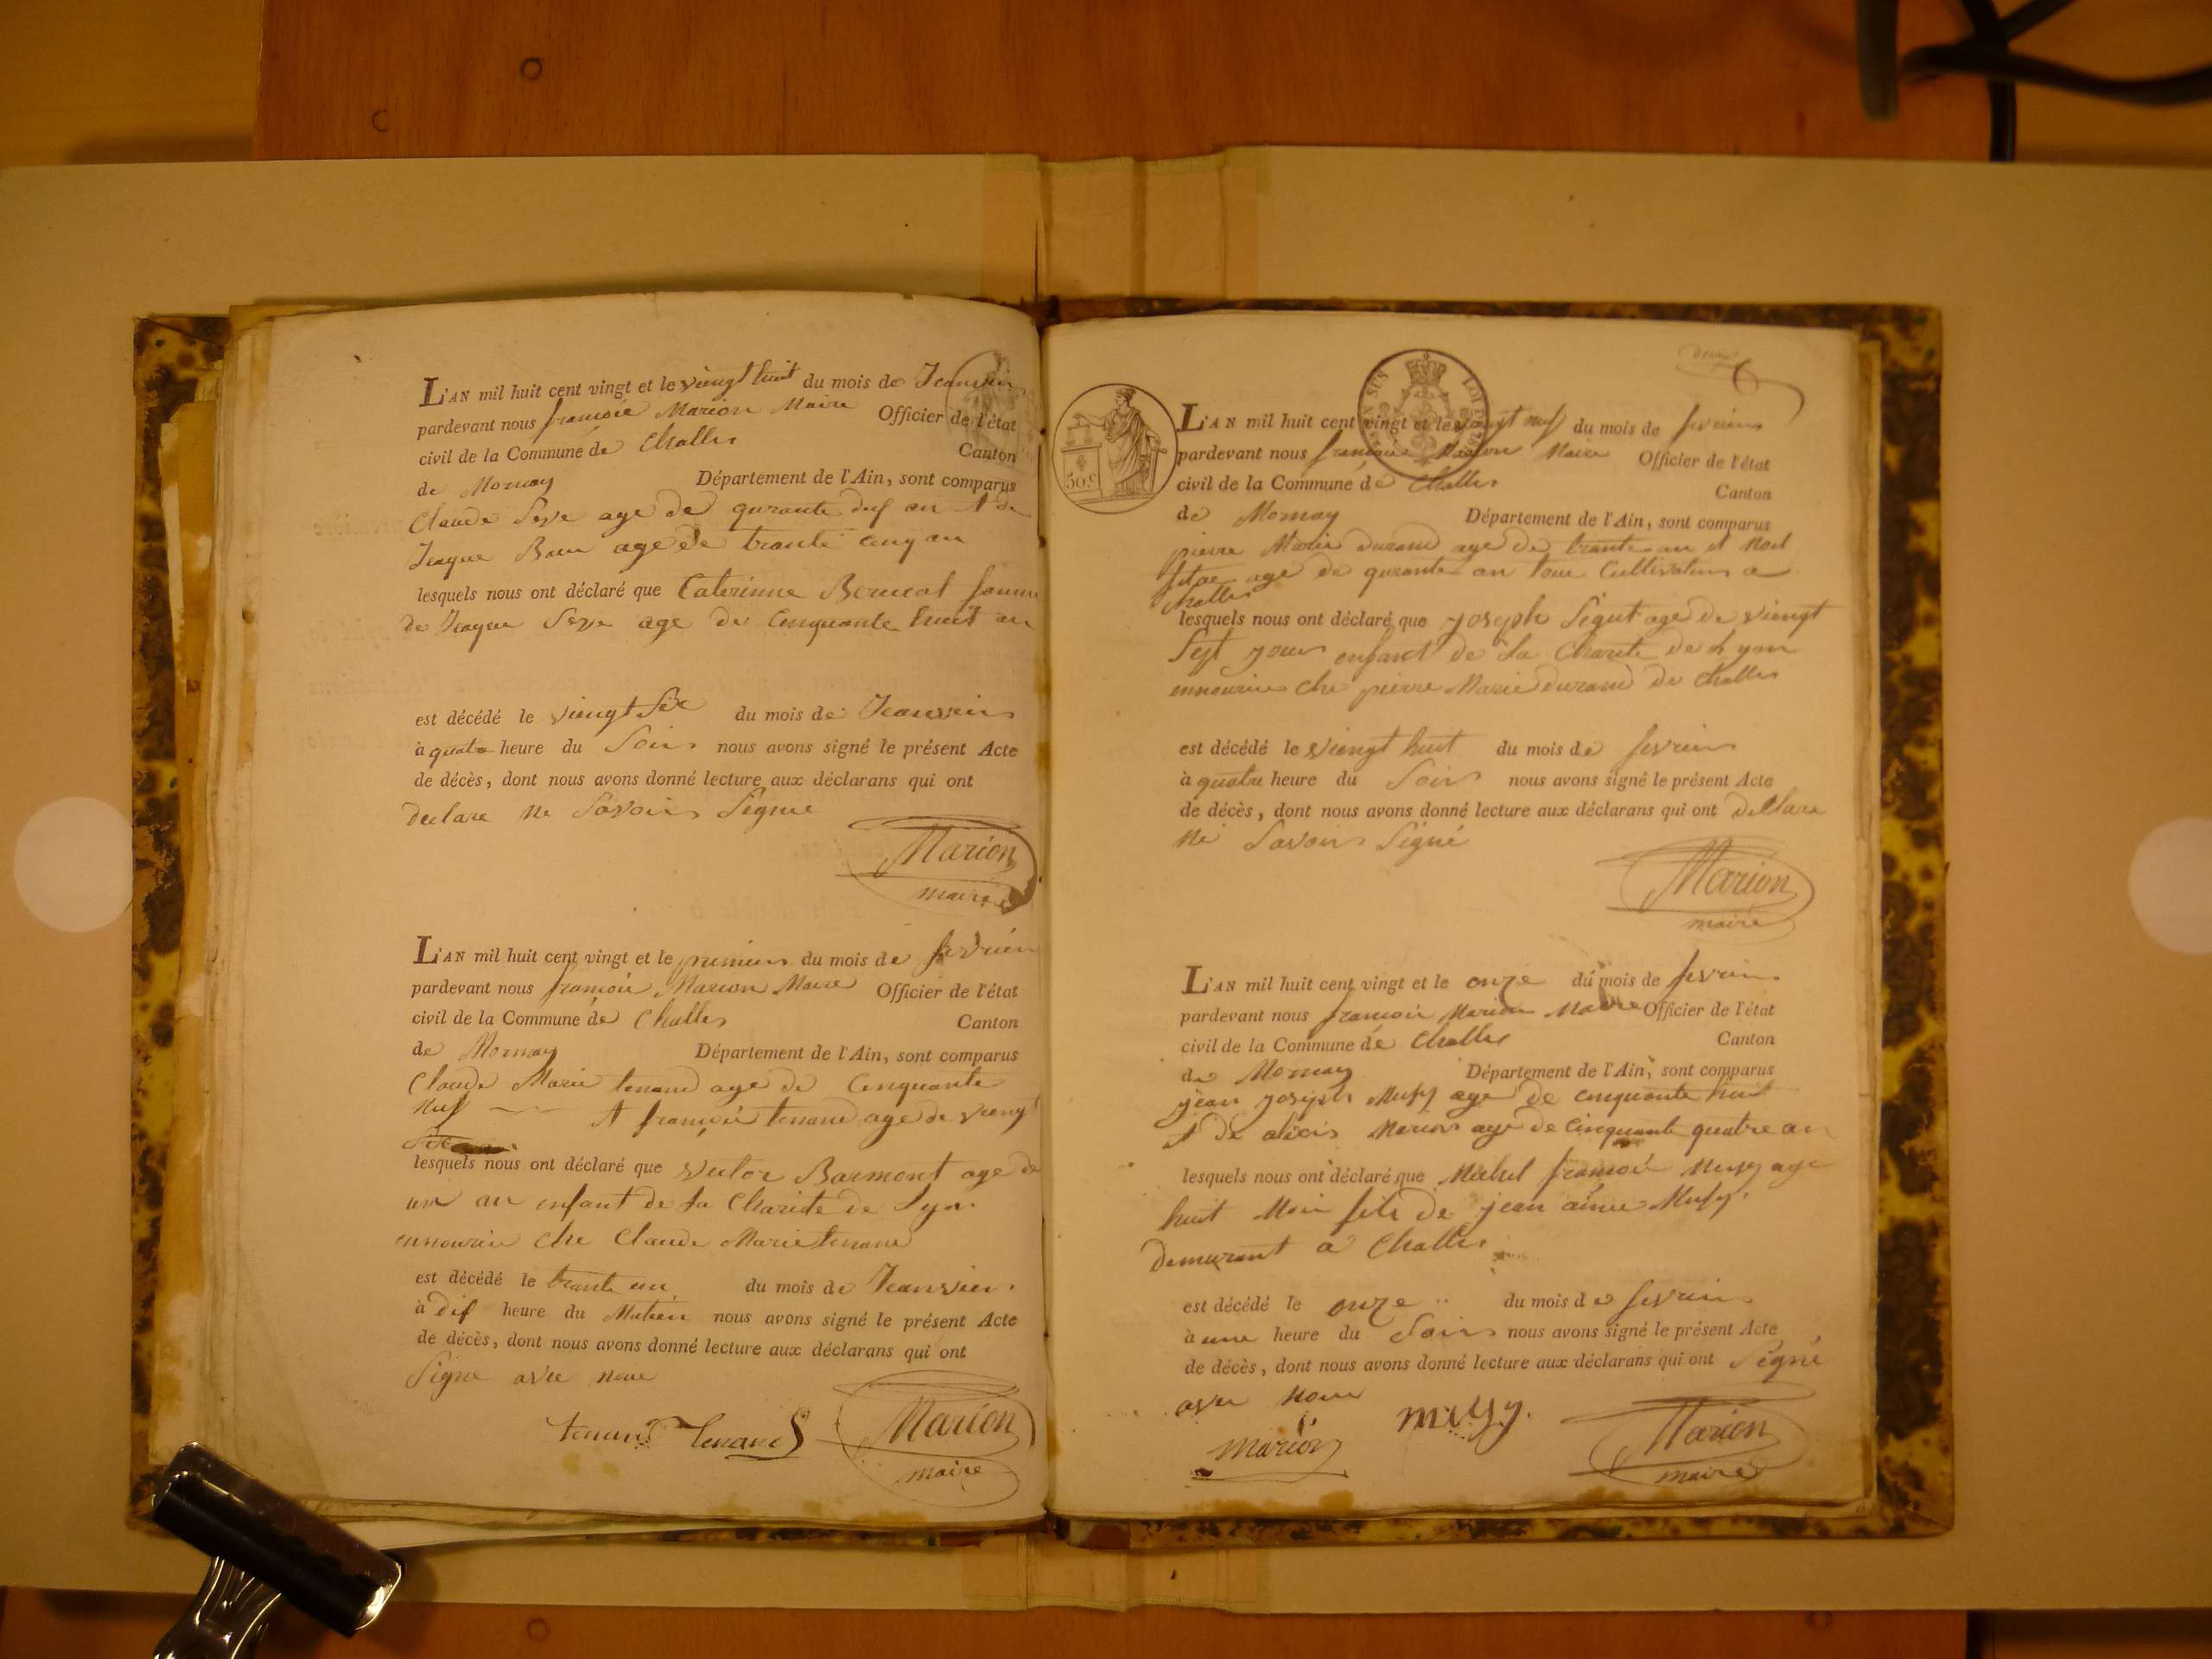 L'AN mil huit cent vingt et le viengt huit du mois de Jeanvier
pardevant nous francois Marion Maire Officier de l'état
civil de la Commune de Challes
Canton
de Mornay Département de l'Ain, sont comparus
Claude Seve age de qurante an et de
Jeaque age de trante cinq an
lesquels nous ont déclaré que Caterinne famme
de Jeaque Seve age de Cinquante huit an
est décédé le viengt Six du mois de Jeanvier
à quatre heure du Soir nous avons signé le présent Acte
de décès, dont nous avons donné lecture aux déclarans qui ont
declare ne Savoir Signe
Marion
maire
L'AN mil huit cent vingt et le premier du mois de fevrier
pardevant nous francois Marion Maire Officier de l'état
civil de la Commune de Challes
Canton
de Mornay Département de l'Ain, sont comparus
Claude Marie tenand age de Cinquante
Nuf et francois tenand age de viengt
Six
lesquels nous ont déclaré que victor Barmont age de
un an enfant de la Charite de Lyon
ennourice che Claude Marie tenand
est décédé le trante un du mois de Jeanvier
à dis heure du Matien nous avons signé le présent Acte
de décès, dont nous avons donné lecture aux déclarans qui ont
Signe avec nous
tenand tenand Marion
maire
deux
50.c
L'AN mil huit cent vingt et le viengt nuf du mois de fevrier
pardevant nous francois Marion Maire Officier de l'état
civil de la Commune de Challes
Canton
de Mornay Département de l'Ain, sont comparus
pierre Marie durand age de trante an et Noel
age de qurante an tous Cultivateur a
Challes
lesquels nous ont déclaré que joseph Sigut age de viengt
Sept jour enfant de la Charite de Lyon
ennourice che pierre Marie durand de Challes
est décédé le viengt huit du mois de fevrier
à quatre heure du Soir nous avons signé le présent Acte
de décès, dont nous avons donné lecture aux déclarans qui ont declare
ne Savoir Signé
Marion
maire
L'AN mil huit cent vingt et le onze du mois de fevrier
pardevant nous francois Marion Maire Officier de l'état
civil de la Commune de Challes
Canton
de Mornay Département de l'Ain, sont comparus
jean joseph Musy age de cinquante huit
et de alixis Marion age de Cinquante quatre an
lesquels nous ont déclaré que Michel francois Musy age
huit Moi fils de jean aimee Musy
demurant a Challes
est décédé le onze du mois de fevrier
à une heure du Soir nous avons signé le présent Acte
de décès, dont nous avons donné lecture aux déclarans qui ont Signé
avec nous
marion musy. Marion
maire